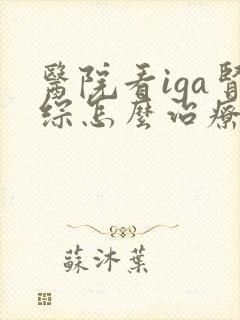 醫院看iga腎
綜怎麼治療
蘇沐葉